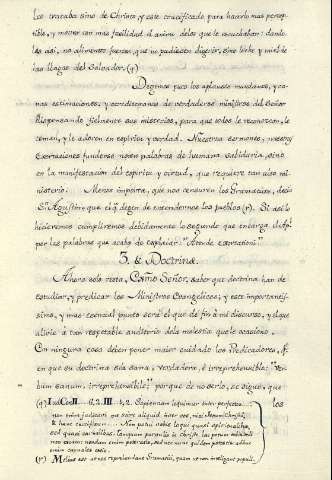 les trataba sino de Christo, y este crucificado para hacerlo mas percep-
tible, y mover con mas facilidad el animo delos que le escuchaban: dando
les asi, no alimentos fuertes, que no pudiesen digerir, sino leche y miel de
las llagas del Salvador. (q)
Dejemos pues los aplausos mundanos, y va-
nas estimaciones, y acreditemonos de verdaderos ministros del Señor
dispensando fielmente sus misterios, para que todos le reconozcan, le
teman, y le adoren en espiritu y verdad. Nuestros sermones, nuestras
exortaciones fundense no en palabras de humana sabiduria, sino
en la manifestacion del espiritu y virtud, que requiere tan alto mi-
nisterio. Menos importa, que nos censuren los Gramaticos, decia
Sn. Agustin, que el q. dejen de entendernos los pueblos (r). Si asi lo
hicieremos cumpliremos debidamente lo segundo que encarga el Apl.
por las palabras que acabo de explicar "Atende exortationi"
3. & Doctrinæ.
Ahora solo resta, Exmo Señor, saber que doctrina han de
estudiar, y predicar los Ministros Evangelicos; y este importanti-
simo, y mas esencial punto será el que de fin á mi discurso, y el que
alivie á tan respetable auditorio dela molestia que le ocasiono.
Con ninguna cosa deben poner maior cuidado los Predicadores, q.
en que su doctrina sea sana, verdadera, é irreprehensible: "Ver-
bum sanum, irreprehensibile;" porque de no serlo, se sigue, que
los
(q) I ad Cor II. 6, 2. III. 1, 2. Sapientiam loquimur inter perfectos
non enim judicavi me scire aliquid inter vos, nisi Jesum Christum,
& hunc crucifixum. Non potui vobis loqui quasi spiritualibus,
sed quasi carnalibus. Tamquam parvulis in Christo lac potum vobis dedi
non escam: nondum enim poteratis, sed nec nunc quidem potestis: adhuc
enim carnales estis.
(r) Melius est ut nos reprehendant Gramatici, quam ut non intelligant populi.